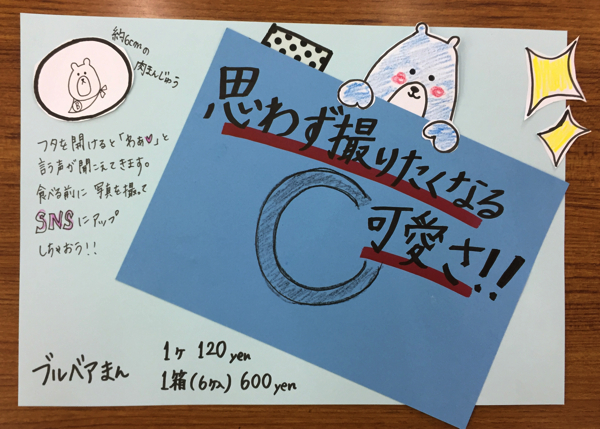 約6cmの
肉まんじゅう
フタを開けると「わぁ♥」と
言う声が聞こえてきます。
食べる前に写真を撮って
SNSにアップ
しちゃおう!!
思わず撮りたくなる
可愛さ!!
ブルベアまん
1ケ 120yen
1箱(6ケ入) 600yen